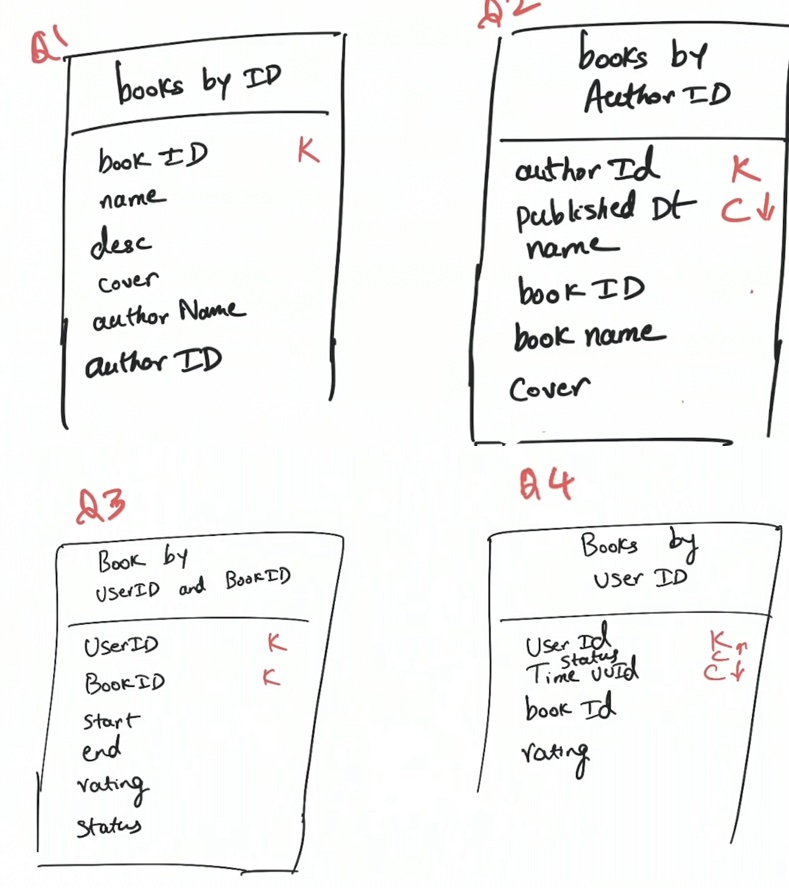 Q1
books by ID
book ID K
name
desc
cover
author Name
author ID
Q2
books by
Author ID
author Id K
Published Dt C↓
name
book ID
book name
Cover
Q3
Book by
UserID and BookID
UserID K
BookID K
Start
end
rating
Status
Q4
Books by
User ID
User Id K
Status C↑
Time UUId C↓
book Id
rating